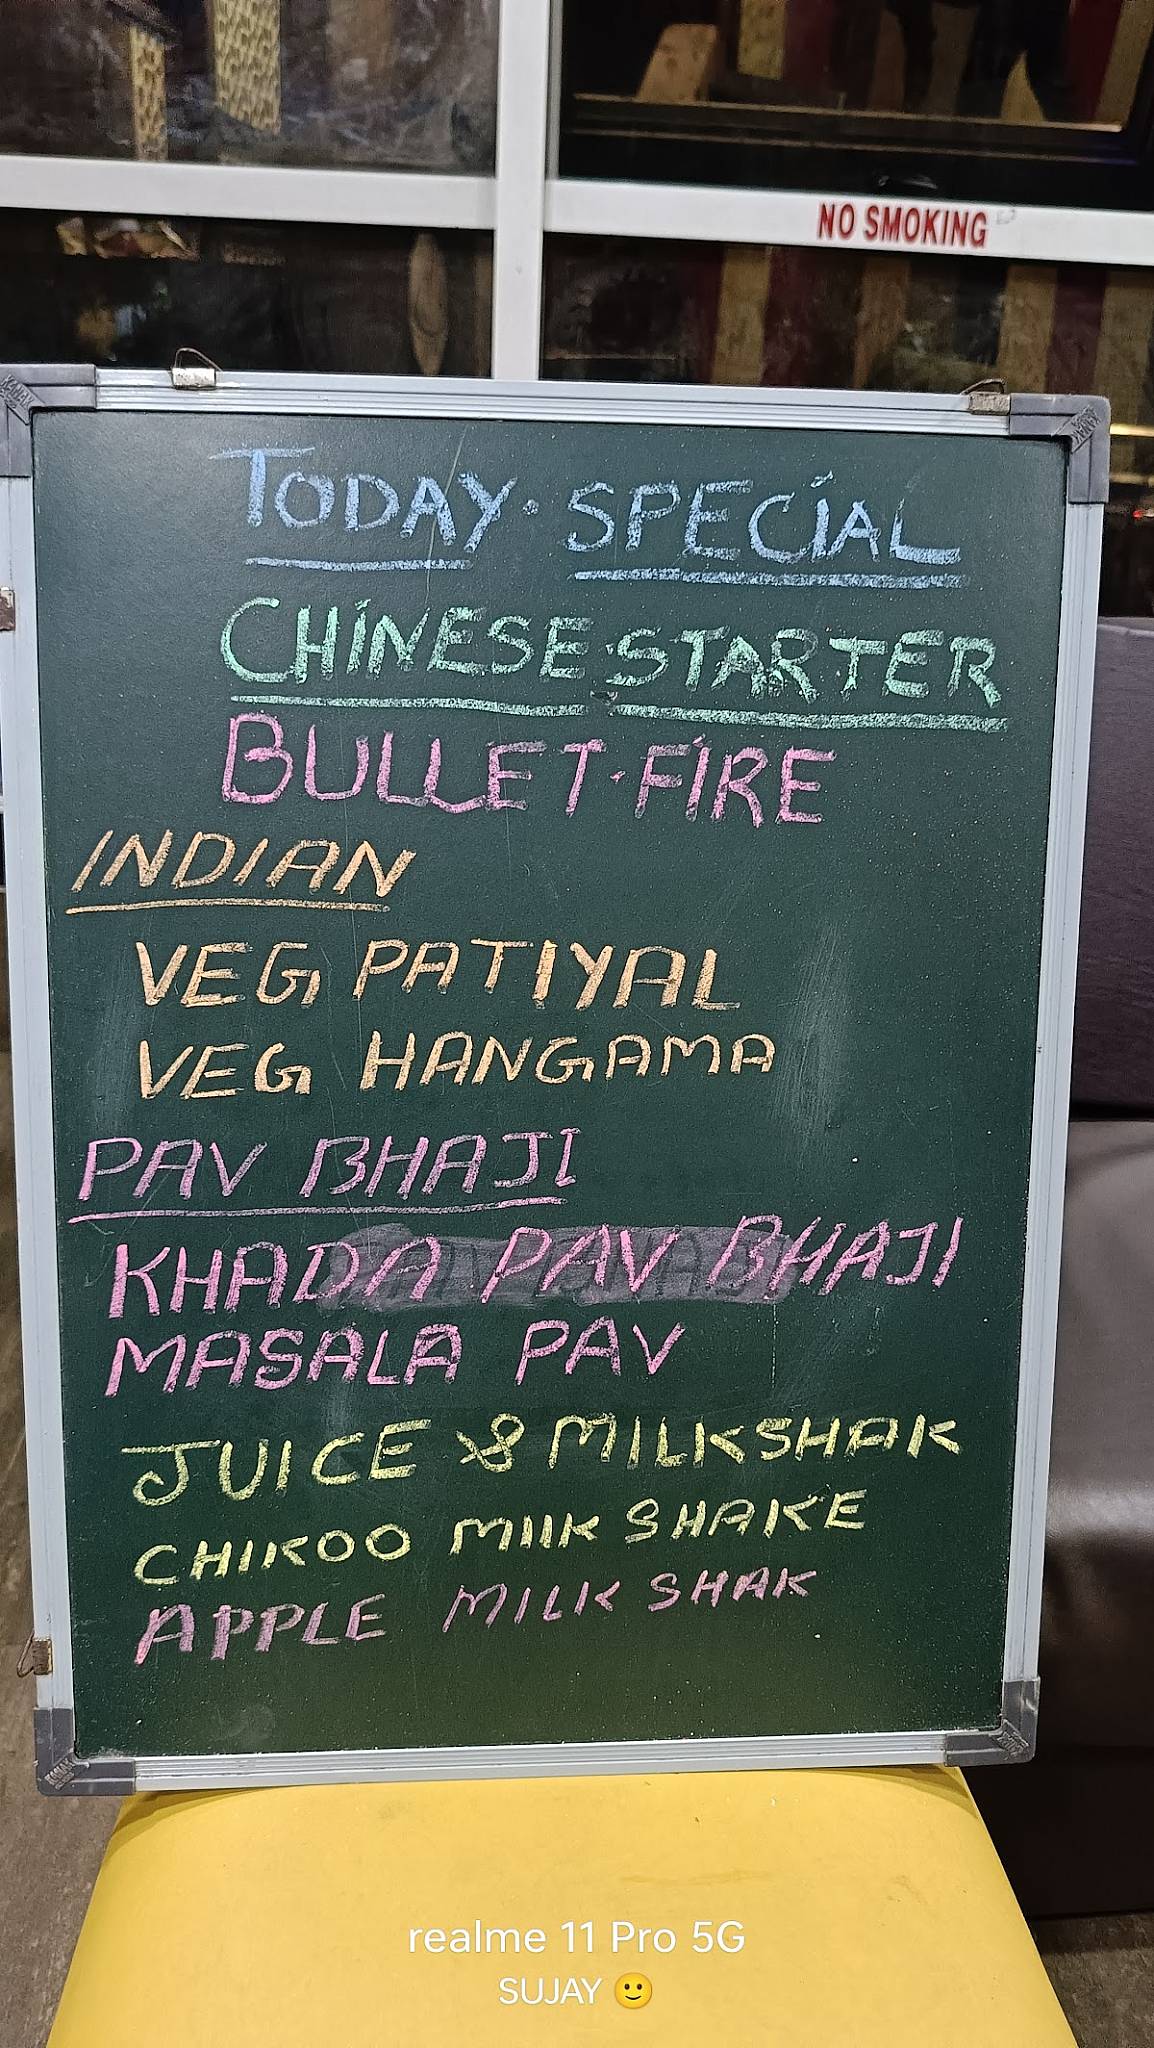 NO SMOKING
TODAY. SPECIAL
CHINESE STARTER
BULLET.FIRE
INDIAN
VEG PATIYAL
VEG HANGAMA
PAV BHAJI
KHADA PAV BHAJI
MASALA PAV
JUICE & MILKSHAK
CHIKOO MILK SHAKE
APPLE MILK SHAK
realme 11 Pro 5G
SUJAY 🙂